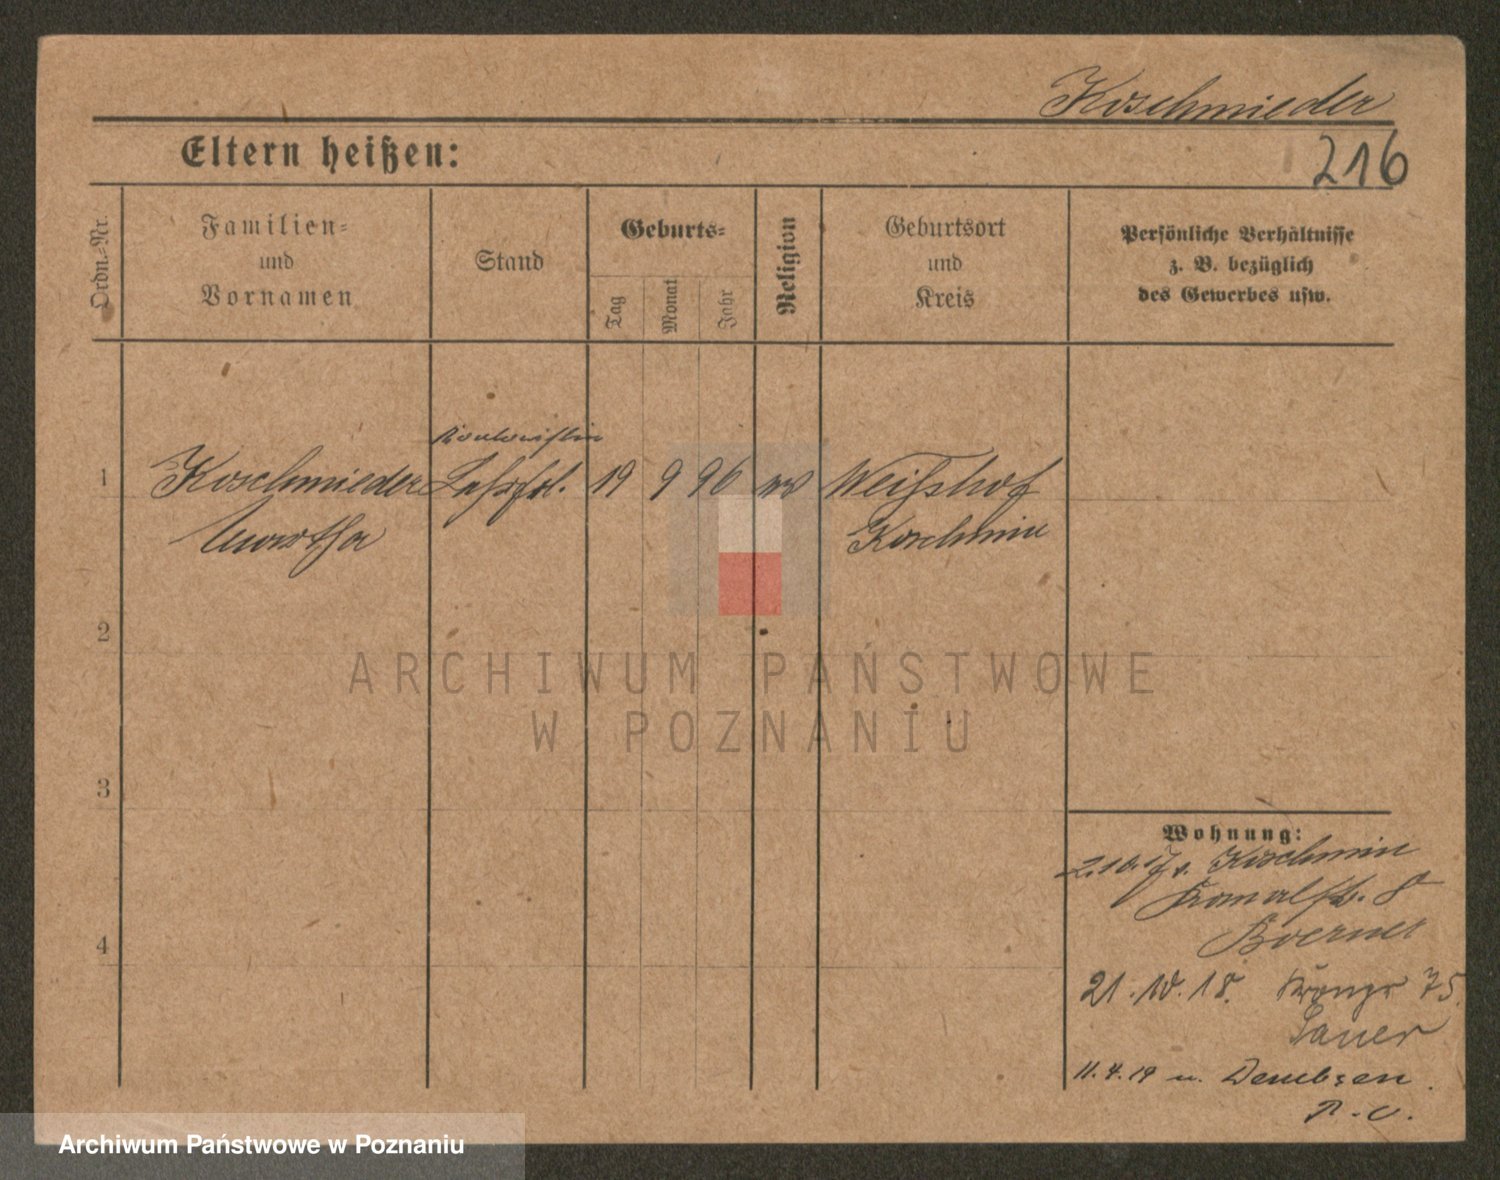 Koschmieder
216
Eltern heißen:
Ordn.-Nr.
Familien-
und
Vornamen
Stand
Geburts-
Tag
Monat
Jahr
Religion
Geburtsort
und
Kreis
Persönliche Verhältnisse
z. B. bezüglich
des Gewerbes usw.
Kontoristin
1 Koschmieder Lehrfrl. 19 9 96 Weißhof
Martha Koschmin
2
3
4
Wohnung:
2.10.17 v. Koschmin
8
Boerner
21.10.18. 75.
Sauer
11.4.19 n. Dembsen.
ARCHIWUM PAŃSTWOWE
W POZNANIU
Archiwum Państwowe w Poznaniu